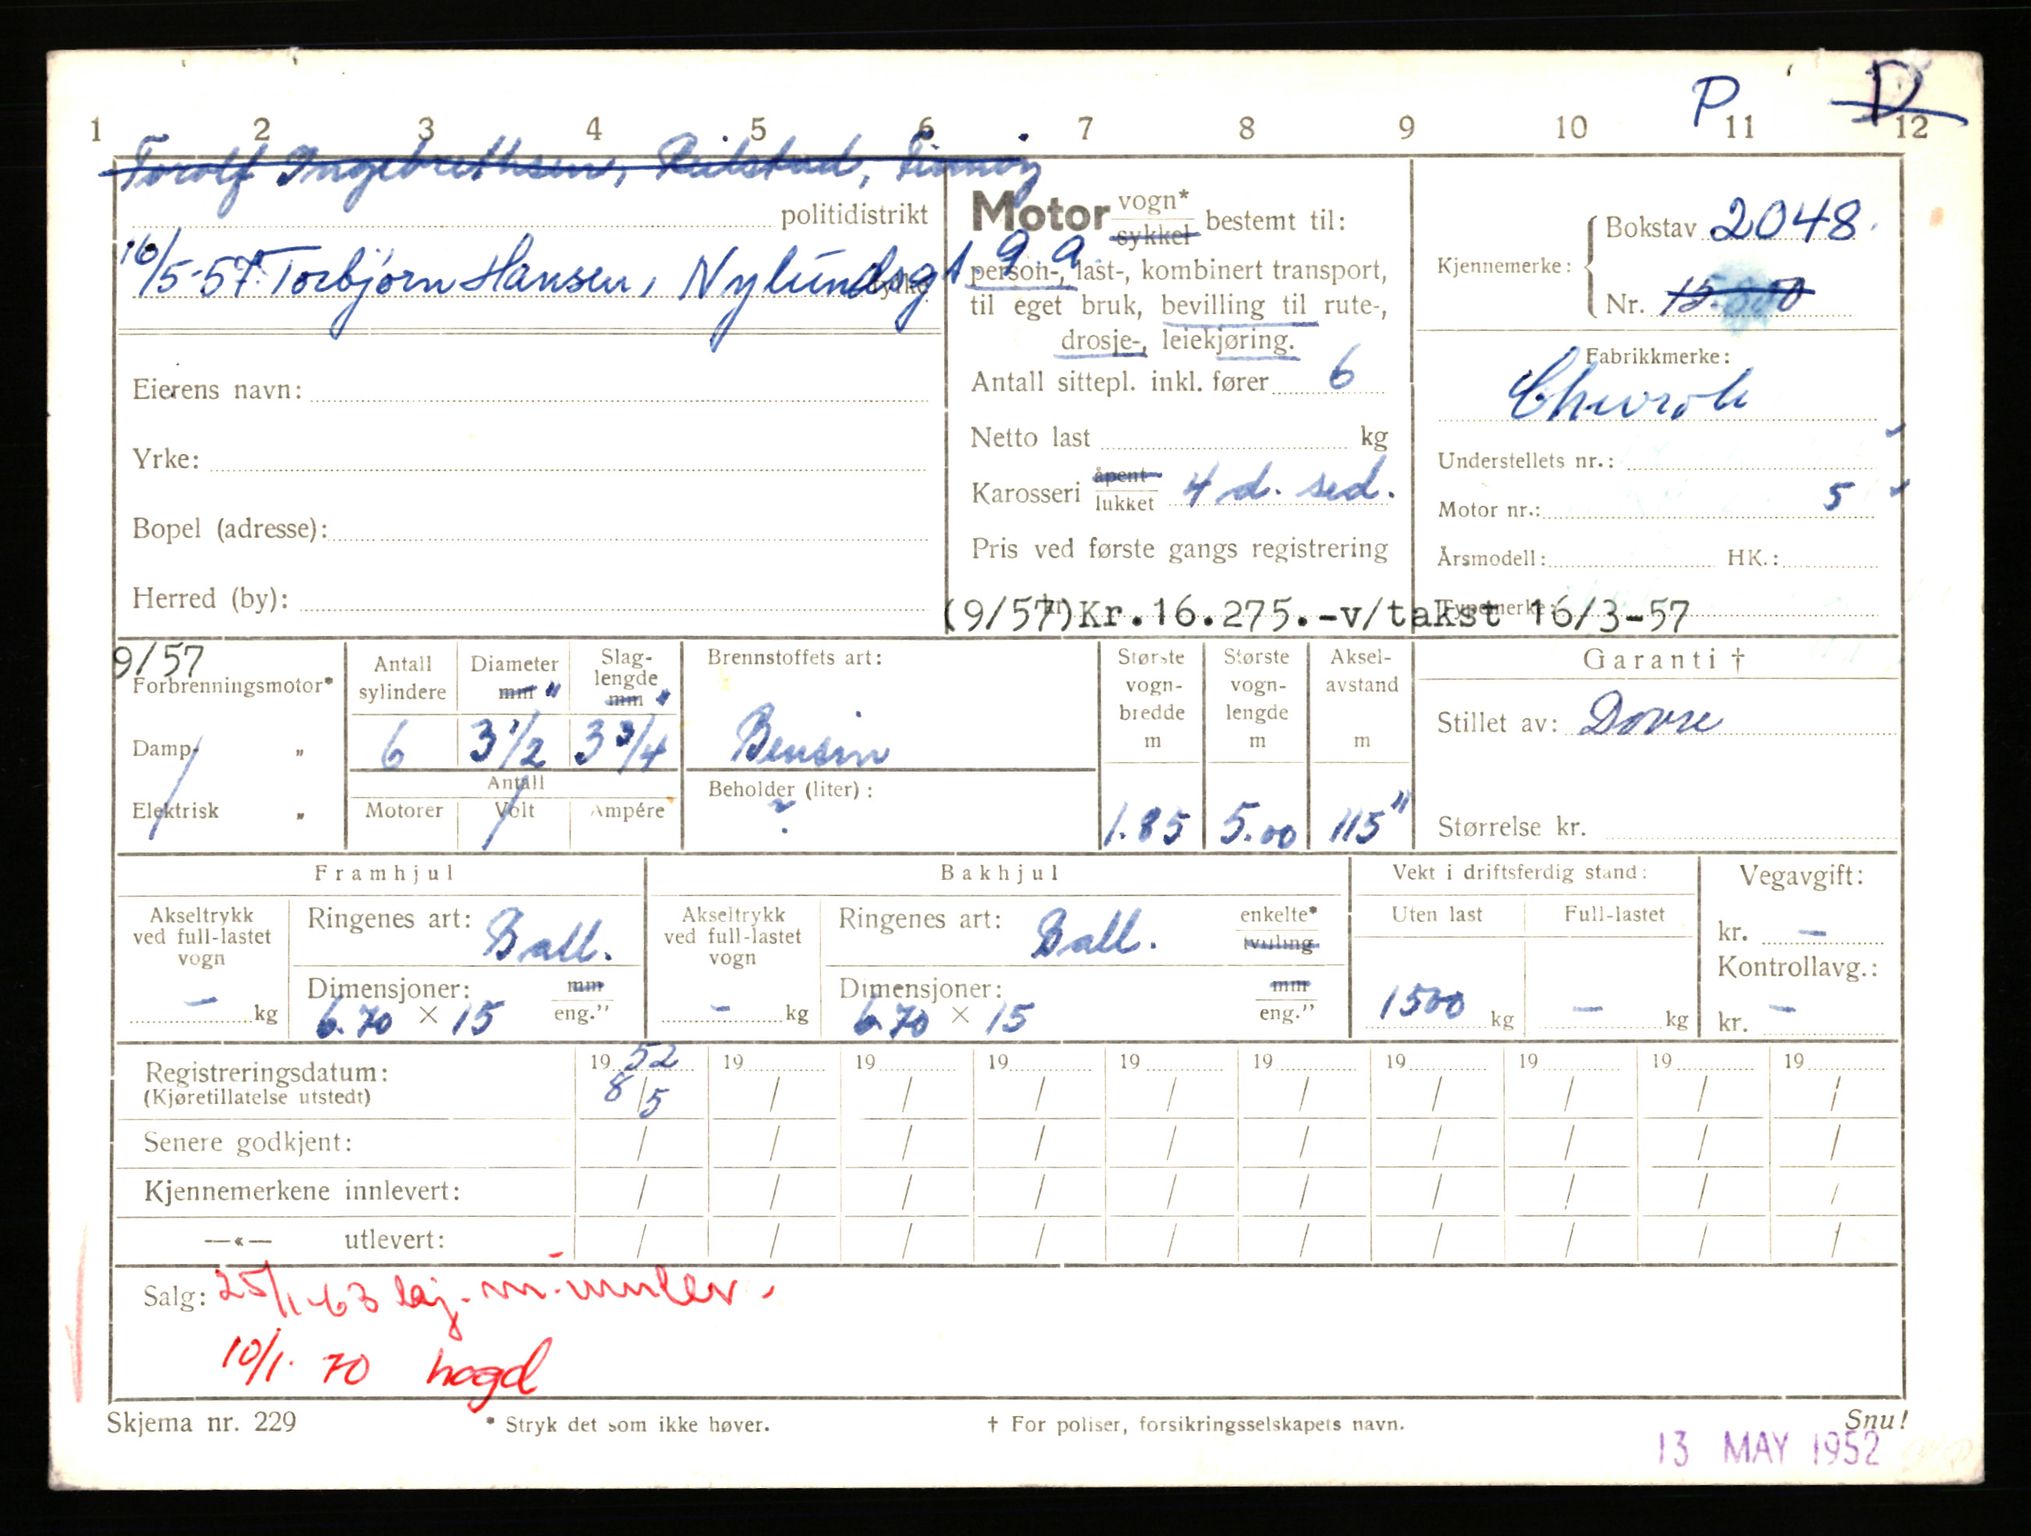 P D
1 2 3 4 5 6 7 8 9 10 11 12
Torolf Ingebrethsen, Finnøy
politidistrikt
16/5-57. Torbjørn Hansen, Nylundsgt. 9a.
fylke
Eierens navn:
Yrke:
Bopel (adresse):
Herred (by):
Motor vogn* sykkel bestemt til:
person-, last-, kombinert transport,
til eget bruk, bevilling til rute-,
drosje-, leiekjøring.
Antall sittepl. inkl. fører 6
Netto last kg
Karosseri åpent lukket 4 d. sed.
Pris ved første gangs registrering
kr.
(9/57) Kr.16.275.-v/takst 16/3-57
Kjennemerke: Bokstav 2048.
Nr.
Fabrikkmerke:
Chevrole
Understellets nr.:
Motor nr.: 5
Årsmodell: HK.:
Typemerke:
9/57
Forbrenningsmotor*
Damp- „
Elektrisk „
Antall sylindere
6
Diameter mm "
3 1/2
Slag-lengde mm "
3 3/4
Antall
Motorer Volt Ampére
Brennstoffets art:
Bensin
Beholder (liter):
?
Største vogn-bredde m
1.85
Største vogn-lengde m
5.00
Aksel-avstand m
115"
Garanti †
Stillet av: Dovre
Størrelse kr.
Framhjul
Akseltrykk ved full-lastet vogn
– kg
Ringenes art: Ball.
Dimensjoner: mm eng."
6.70 × 15
Bakhjul
Akseltrykk ved full-lastet vogn
– kg
Ringenes art: Ball. enkelte* tvilling
Dimensjoner: mm eng."
6.70 × 15
Vekt i driftsferdig stand:
Uten last Full-lastet
1500 kg – kg
Vegavgift:
kr. –
Kontrollavg.:
kr. –
Registreringsdatum: 19 52 19 19 19 19 19 19 19 19 19
(Kjøretillatelse utstedt) 8/5 / / / / / / / / /
Senere godkjent: / / / / / / / / / /
Kjennemerkene innlevert: / / / / / / / / / /
—«— utlevert: / / / / / / / / / /
Salg: 25/1-63
10/1. 70 hogd
Skjema nr. 229 * Stryk det som ikke høver. † For poliser, forsikringsselskapets navn. Snu!
13 MAY 1952